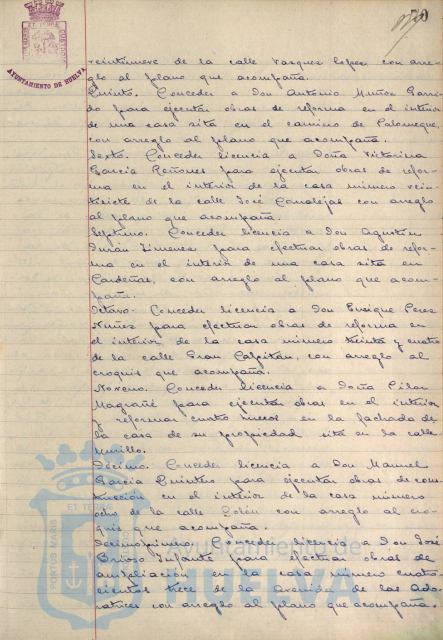 AYUNTAMIENTO DE HUELVA
veintinueve de la calle Vazquez Lopez con arre-
glo al plano que acompaña.
Quinto. Conceder a Don Antonio Muñoz Garri-
do para ejecutar obras de reforma en el interior
de una casa sita en el camino de Palomeque,
con arreglo al plano que acompaña.
Sexto. Conceder licencia a Doña Victorina
Garcia Reñones para ejecutar obras de refor-
ma en el interior de la casa número vein-
tisiete de la calle José Canalejas con arreglo
al plano que acompaña.
Septimo. Conceder licencia a Don Agustín
Durán Jimenez para efectuar obras de refor-
ma en el interior de una casa sita en
Cardeñas, con arreglo al plano que acom-
paña.
Octavo- Conceder licencia a Don Enrique Perez
Nuñez para efectuar obras de reforma en
el interior de la casa número treinta y cuatro
de la calle Gran Capitán, con arreglo al
croquis que acompaña.
Noveno. Conceder licencia a Doña Pilar
Magrañé para ejecutar obras en el interior
y reformar cuatro huecos en la fachada de
la casa de su propiedad sita en la calle
Murillo.
Décimo. Conceder licencia a Don Manuel
Garcia Quintero para ejecutar obras de cons-
trucción en el interior de la casa número
ocho de la calle Colón con arreglo al cro-
quis que acompaña.
Decimoprimo. Conceder licencia a Don José
Barroso Infante para efectuar obras de
ampliación en la casa número cuatro-
cientos trece de la avenida de las Ado-
ratrices con arreglo al plano que acompaña.
PORTUS MARIS
Ayuntamiento de
HUELVA